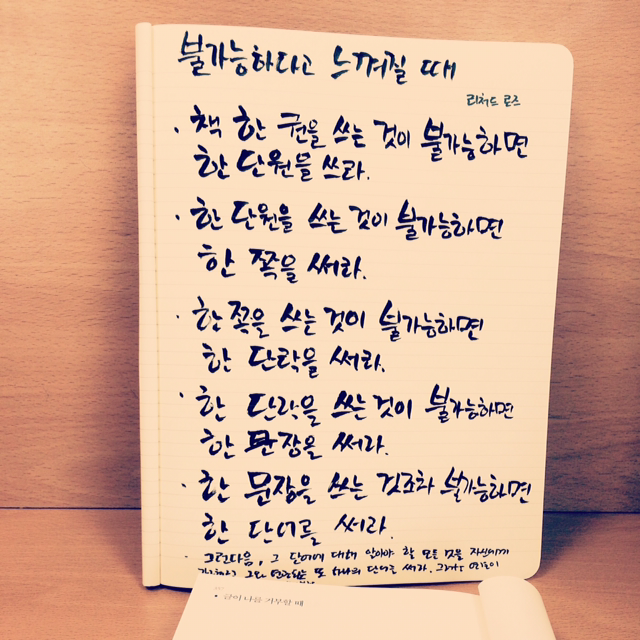 불가능하다고 느껴질 때
리처드 로즈
· 책 한 권을 쓰는 것이 불가능하면
한 단원을 쓰라.
· 한 단원을 쓰는 것이 불가능하면
한 쪽을 써라.
· 한 쪽을 쓰는 것이 불가능하면
한 단락을 써라.
· 한 단락을 쓰는 것이 불가능하면
한 문장을 써라.
· 한 문장을 쓰는 것조차 불가능하면
한 단어를 써라.
· 그런다음, 그 단어에 대해 알아야 할 모든 것을 자신에게
그와 또 하나의 단어를 써라.
• 글이 나를 거부할 때